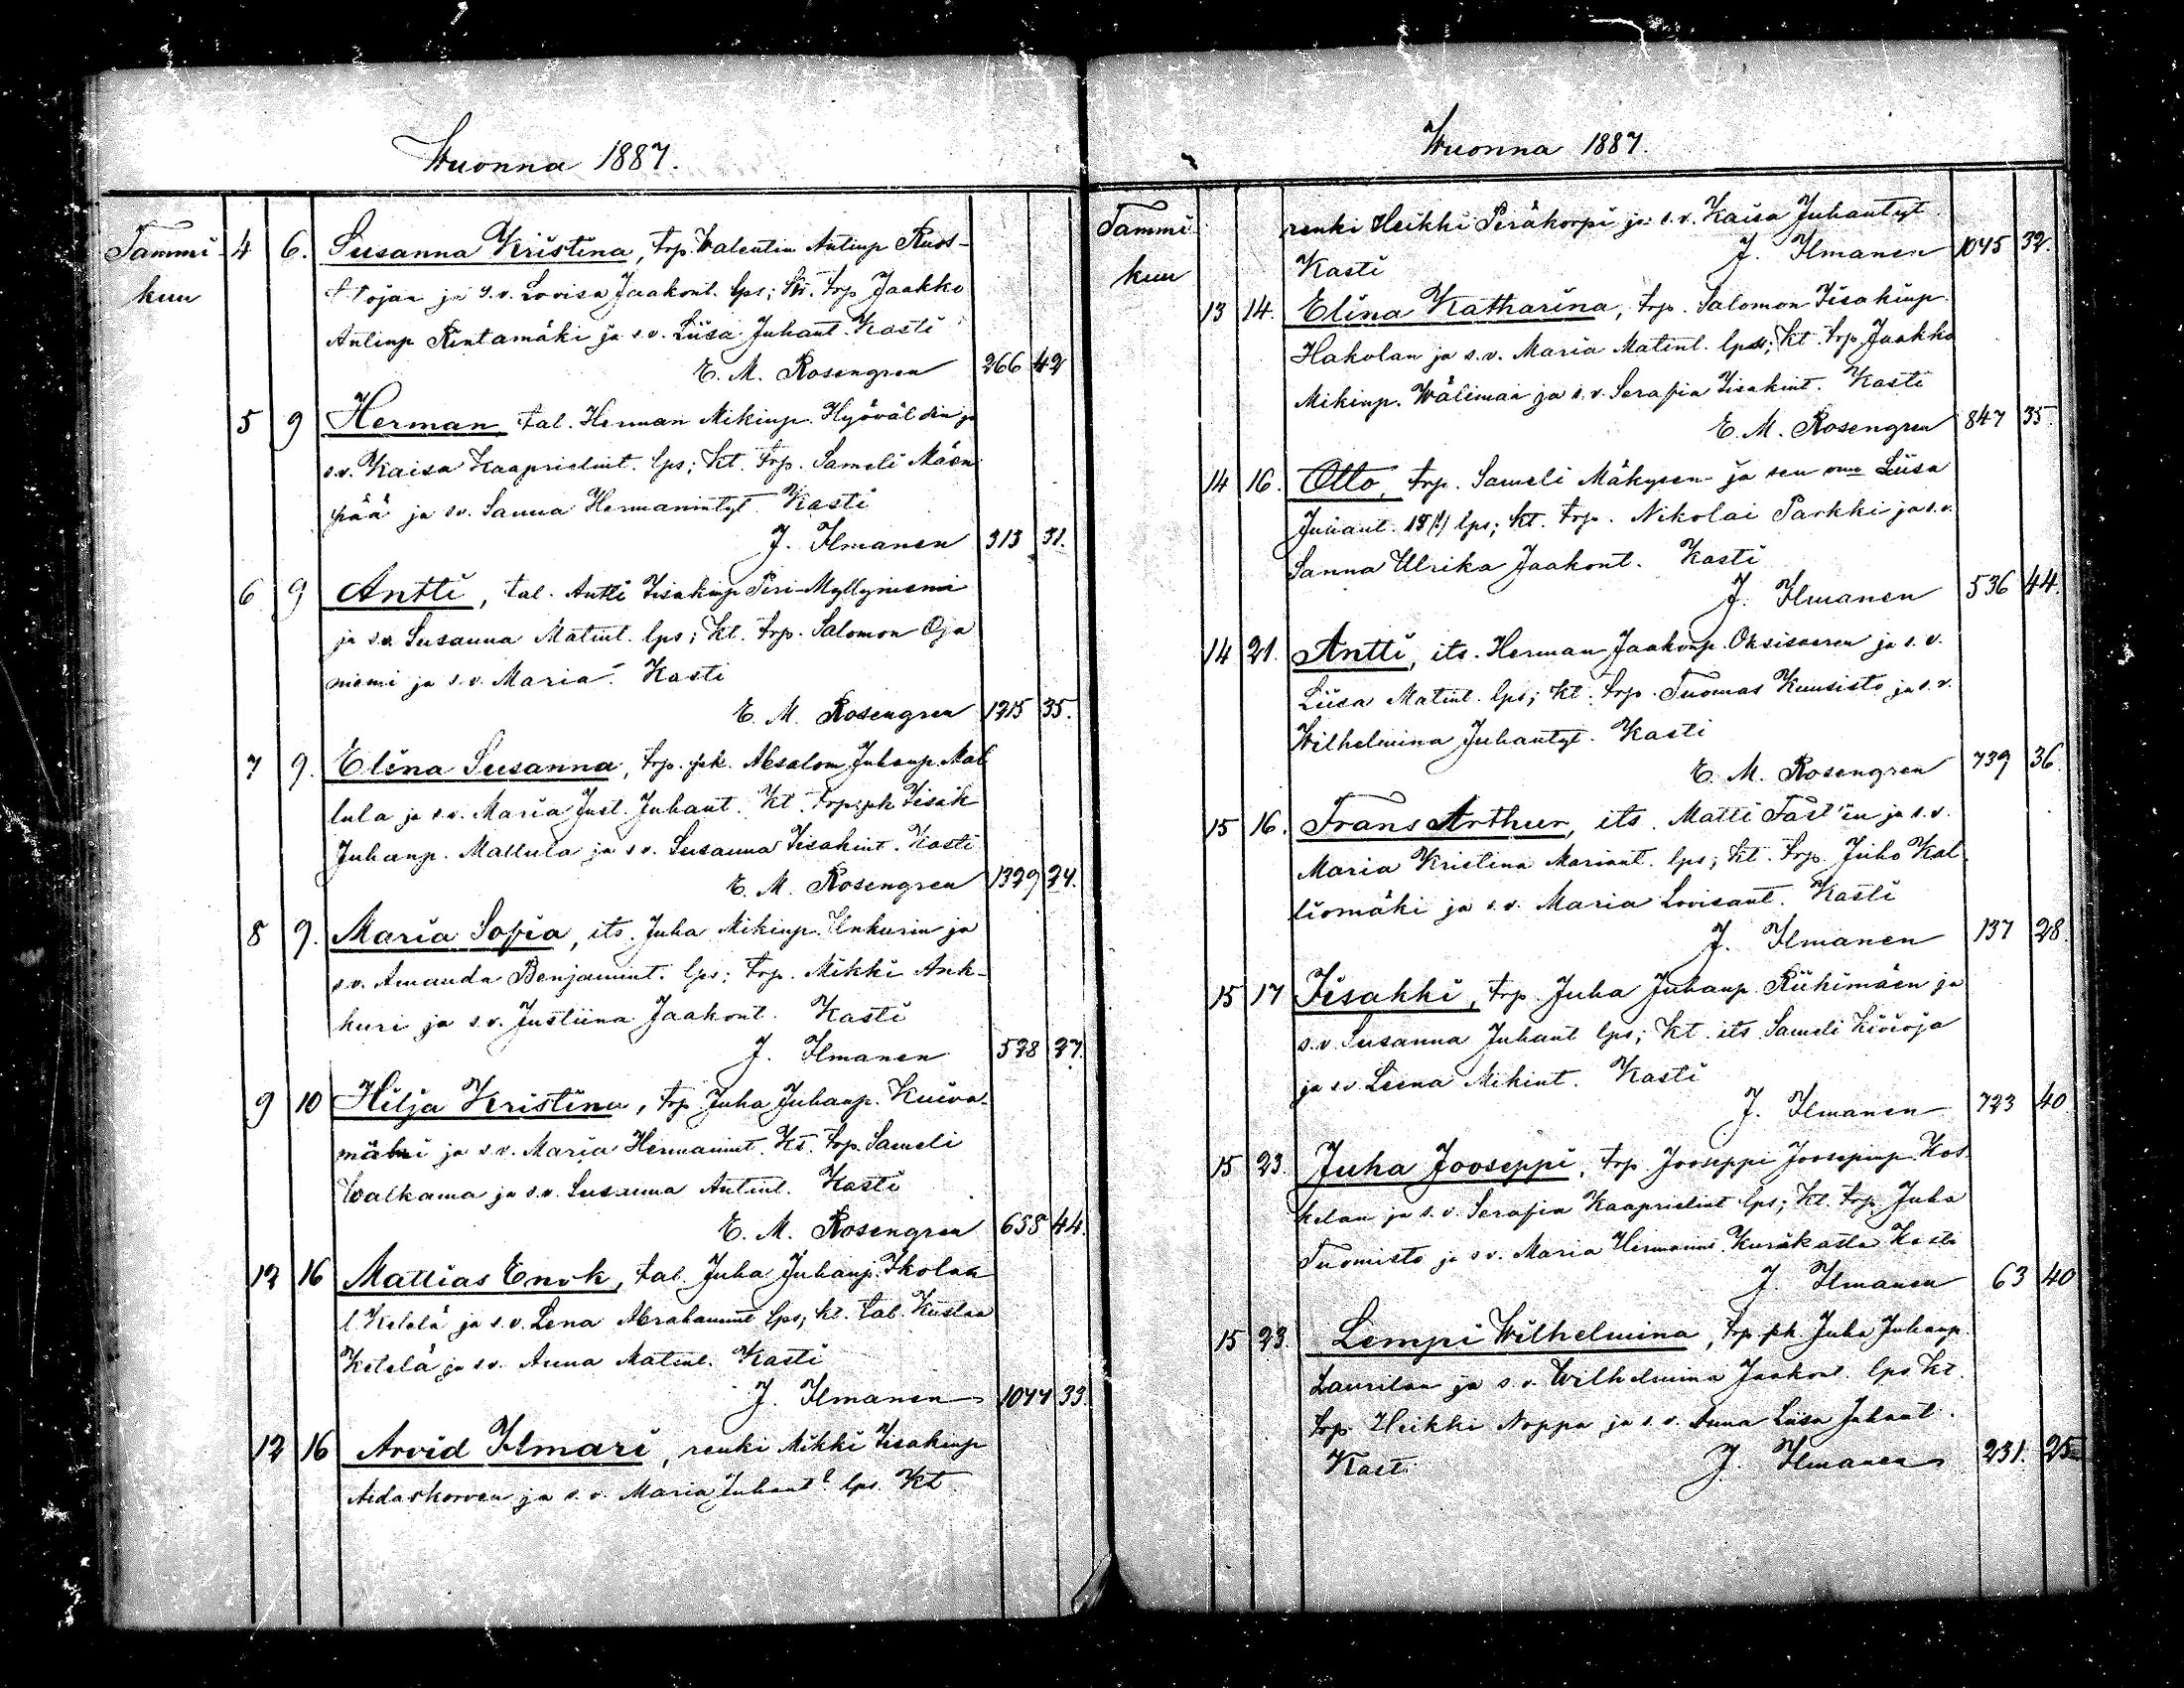 Wuonna 1887.
Tammi- 4 6. Susanna Kristina, trp. Valentin Antinp Ruos-
kuu tojan ja s.v. Lovisa Jaakont. lps; Kt. trp Jaakko
Antinp Rintamäki ja s.v. Liisa Juhant. Kasti
E. M. Rosengren 266 42
5 9 Herman, tal. Herman Mikinp. Hyöväldin ja
s.v. Kaisa Kaaprielint. lps; Kt. trp. Sameli Mäen
pää ja s.v. Sanna Hermanintyt. Kasti
J. Ilmanen 313 31.
6 9 Antti, tal. Antti Iisakinp Piri-Myllyniemi
ja s.v. Susanna Matint. lps; Kt. trp. Salomon Oja
niemi ja s.v. Maria. Kasti
E. M. Rosengren 1215 35.
7 9. Elina Susanna, trp. pk. Absalom Juhanp. Mal
lula ja s.v. Maria Just. Juhant. Kt. trp. pk Iisak
Juhanp. Mallula ja s.v. Susanna Iisakint. Kasti
E. M. Rosengren 1329 24.
8 9. Maria Sofia, its. Juha Mikinp. Unkurin ja
s.v. Amanda Benjamint. lps; trp. Mikki Ank-
kuri ja s.v. Justiina Jaakont. Kasti
J. Ilmanen 528 27.
9 10 Hilja Kristina, trp Juha Juhanp. Kuiva-
mäki ja s.v. Maria Hermanint. Kt. trp. Sameli
Walkama ja s.v. Susanna Antint. Kasti
E. M. Rosengren 658 44.
12 16 Mattias Enok, tal. Juha Juhanp. Ikolan
l. Ketelä ja s.v. Lena Abrahamint lps; Kt. tal. Kustaa
Ketelä ja s.v. Anna Matint. Kasti
J. Ilmanen 1044 33.
12 16 Arvid Ilmari, renki Mikki Iisakinp
Aidaskorven ja s.v. Maria Juhant. lps. Kt.
Wuonna 1887.
Tammi- renki Heikki Peräkorpi ja s.v. Kaisa Juhantyt.
kuu Kasti J. Ilmanen 1045 32.
13 14. Elina Katharina, trp. Salomon Iisakinp.
Hakolan ja s.v. Maria Matint. lps; Kt. trp. Jaakko
Mikinp. Wälimai ja s.v. Serafia Iisakint. Kasti
E. M. Rosengren 847 35.
14 16. Otto, trp. Sameli Mäkysen ja sen vmo Liisa
Juhant. lps; Kt. trp. Nikolai Parkki ja s.v.
Sanna Ulrika Jaakont. Kasti
J. Ilmanen 536 44.
14 21. Antti, its. Herman Jaakonp. Oksisaeren ja s.v.
Liisa Matint. lps; Kt. trp. Tuomas Kuusisto ja s.v.
Wilhelmina Juhantyt. Kasti
E. M. Rosengren 739 36.
15 16. Frans Arthur, its. Matti Fäst'in ja s.v.
Maria Kristina Mariant. lps; Kt. trp. Juho Kal
liomäki ja s.v. Maria Lovisant. Kasti
J. Ilmanen 137 28.
15 17 Iisakki, trp. Juha Juhanp. Riihimäen ja
s.v. Susanna Juhant lps; Kt. its Sameli Kivioja
ja s.v. Leena Mikint. Kasti
J. Ilmanen 723 40
15 23. Juha Jooseppi, trp. Jooseppi Joosepinp. Kos
kelan ja s.v. Serafia Kaaprielint lps; Kt. trp. Juha
Tuomisto ja s.v. Maria Hermanint. Kasti
J. Ilmanen 63 40
15 23. Lempi Wilhelmina, trp. pk. Juha Juhanp.
Laurilan ja s.v. Wilhelmina Jaakont. lps Kt.
trp. Heikki Noppa ja s.v. Anna Liisa Juhant.
Kasti J. Ilmanen 231. 25